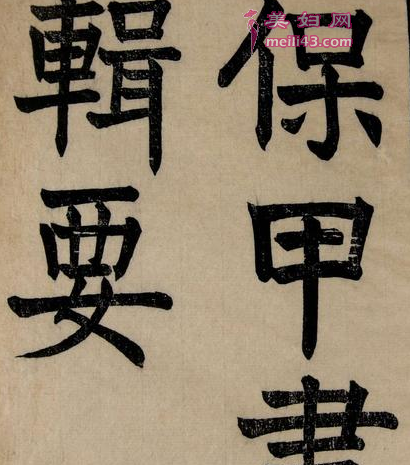 美妇网
meili43.com
保甲書
輯要